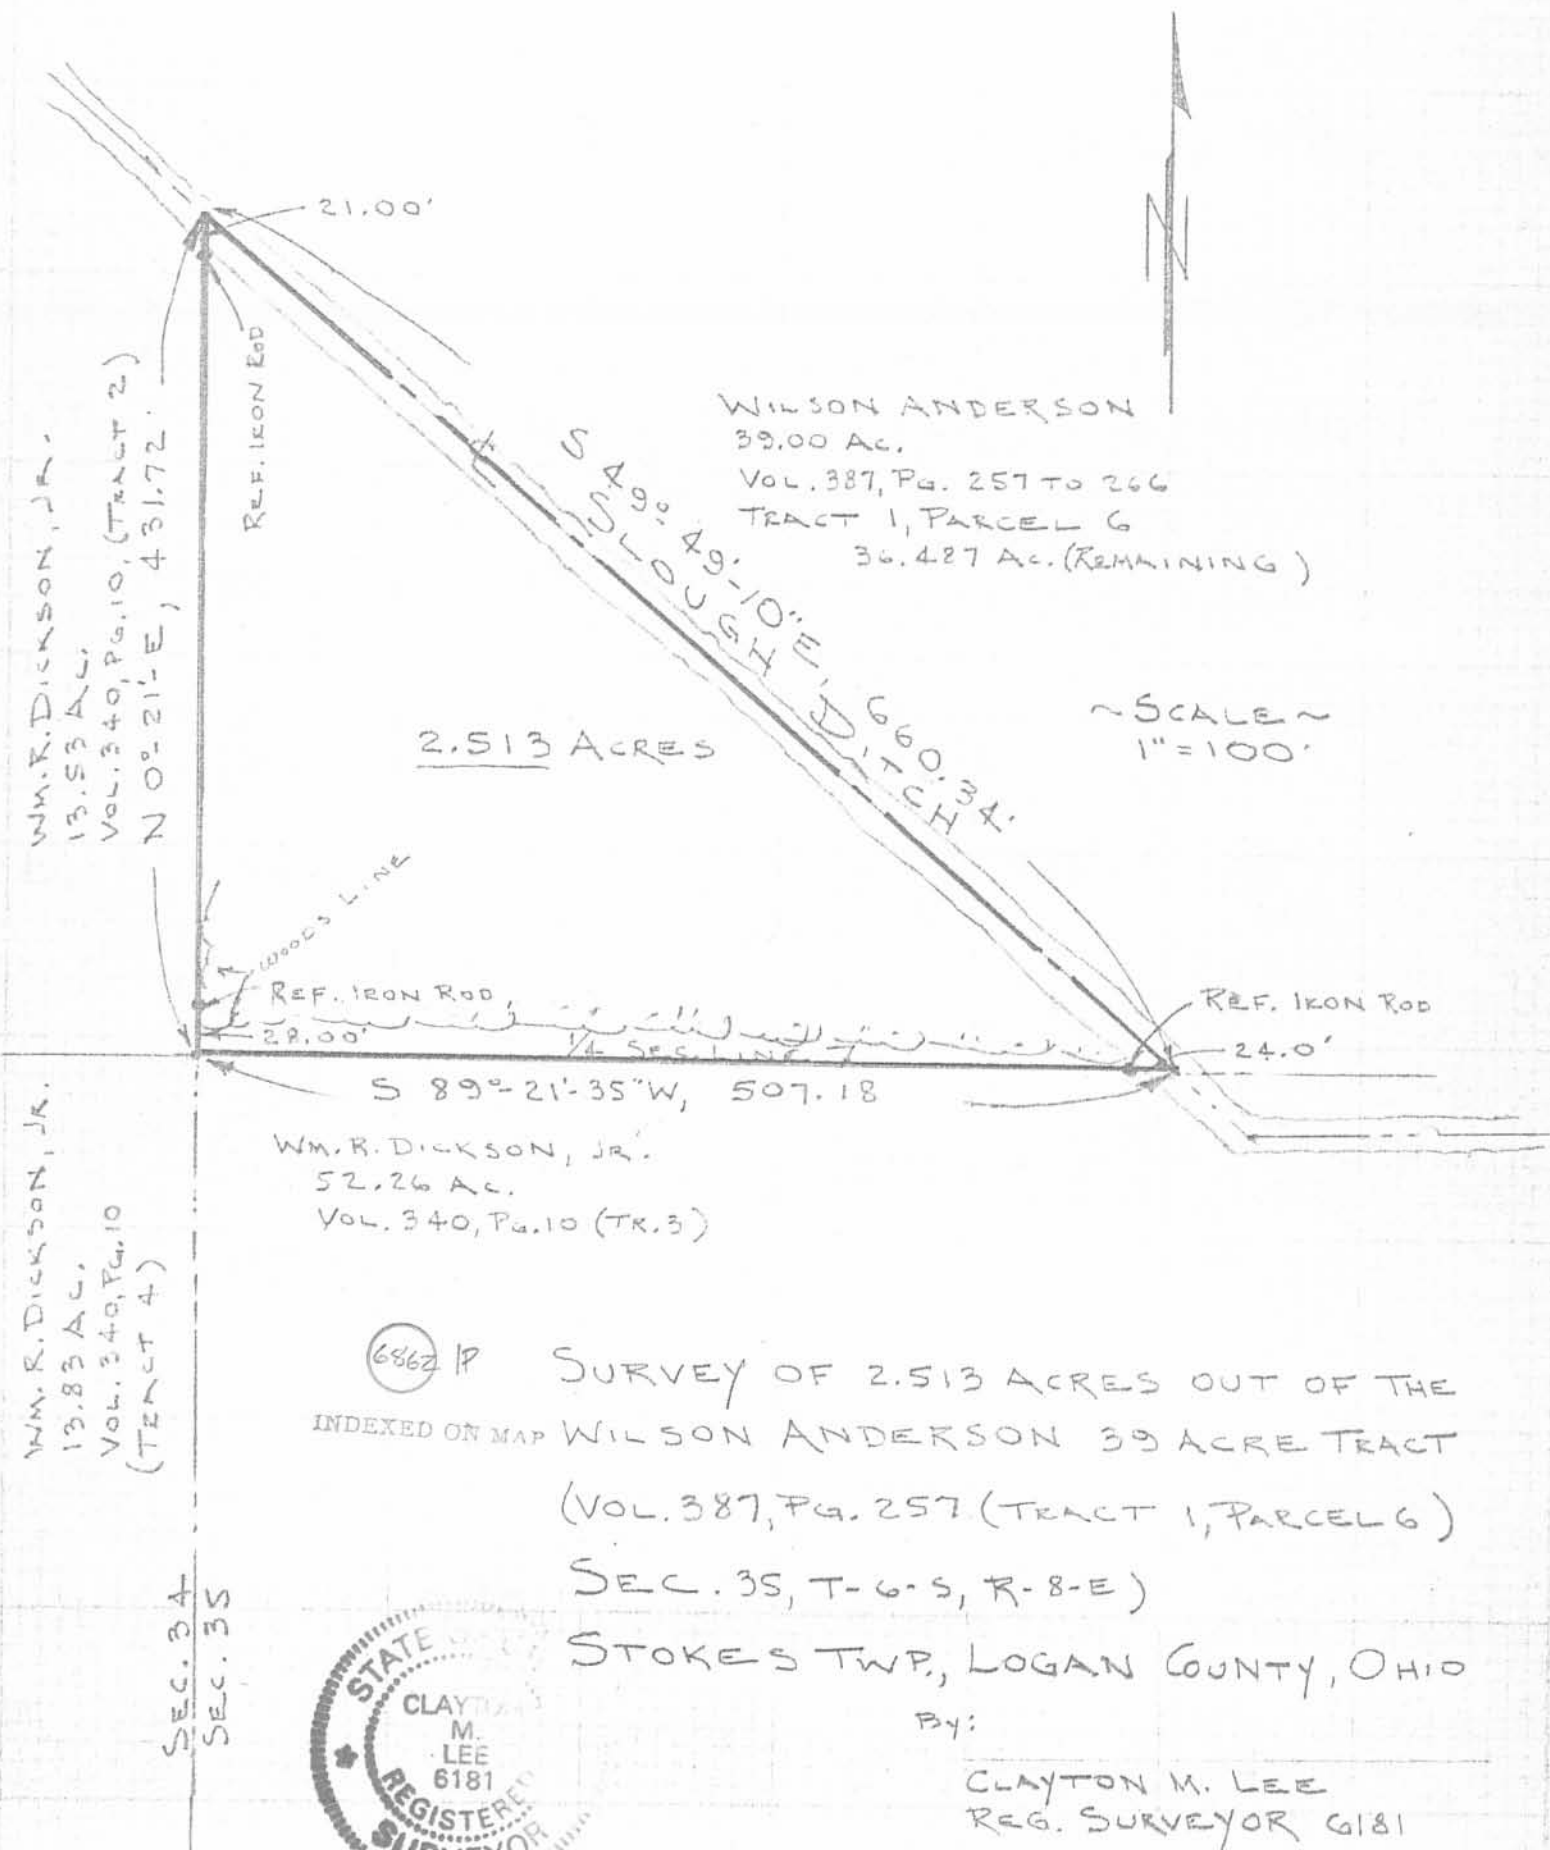 21.00'
REF. IRON ROD
N
WM. R. DICKSON, JR.
13.53 AC.
VOL. 340, PG. 10, (TRACT 2)
N 0°-21'-E, 431.72'
WILSON ANDERSON
39.00 AC.
VOL. 387, PG. 257 TO 266
TRACT 1, PARCEL 6
36.487 AC. (REMAINING)
S 49°-49'-10"E, 660.34'
SLOUGH DITCH
~SCALE~
1"=100'
2.513 ACRES
WOODS LINE
REF. IRON ROD
28.00'
1/4 SEC. LINE
REF. IRON ROD
24.0'
S 89°-21'-35"W, 507.18
WM. R. DICKSON, JR.
52.26 AC.
VOL. 340, PG. 10 (TR. 3)
WM. R. DICKSON, JR.
13.83 AC.
VOL. 340, PG. 10
(TRACT 4)
6862 IP
INDEXED ON MAP
SURVEY OF 2.513 ACRES OUT OF THE
WILSON ANDERSON 39 ACRE TRACT
(VOL. 387, PG. 257 (TRACT 1, PARCEL 6)
SEC. 35, T-6-S, R-8-E)
STOKES TWP., LOGAN COUNTY, OHIO
BY:
CLAYTON M. LEE
REG. SURVEYOR 6181
SEC. 34
SEC. 35
STATE
CLAYTON
M.
LEE
6181
REGISTERED
SURVEYOR